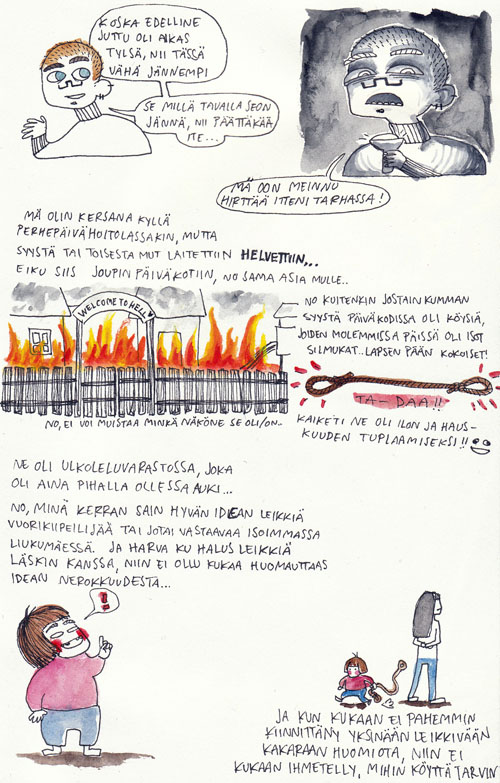 KOSKA EDELLINE
JUTTU OLI AIKAS
TYLSÄ, NII TÄSSÄ
VÄHÄ JÄNNEMPI
SE MILLÄ TAVALLA SE ON
JÄNNÄ, NII PÄÄTTÄKÄÄ
ITE...
MÄ OON MEINNU
HIRTTÄÄ ITTENI TARHASSA!
MÄ OLIN KERSANA KYLLÄ
PERHEPÄIVÄHOITOLASSAKIN, MUTTA
SYYSTÄ TAI TOISESTA MUT LAITETTIIN HELVETTIIN...
EIKU SIIS JOUPIN PÄIVÄKOTIIN, NO SAMA ASIA MULLE..
WELCOME TO HELL
NO, EI VOI MUISTAA MINKÄ NÄKÖNE SE OLI/ON..
NO KUITENKIN JOSTAIN KUMMAN
SYYSTÄ PÄIVÄKODISSA OLI KÖYSIÄ,
JOIDEN MOLEMMISSA PÄISSÄ OLI ISOT
SILMUKAT.. LAPSEN PÄÄN KOKOISET!
TA-DAA!!
KAIKETI NE OLI ILON JA HAUS-
KUUDEN TUPLAAMISEKSI!!
NE OLI ULKOLELUVARASTOSSA, JOKA
OLI AINA PIHALLA OLLESSA AUKI...
NO, MINÄ KERRAN SAIN HYVÄN IDEAN LEIKKIÄ
VUORIKIIPEILIJÄÄ TAI JOTAI VASTAAVAA ISOIMMASSA
LIUKUMÄESSÄ. JA HARVA KU HALUS LEIKKIÄ
LÄSKIN KANSSA, NIIN EI OLLU KUKAA HUOMAUTTAAS
IDEAN NEROKKUUDESTA...
!
JA KUN KUKAAN EI PAHEMMIN
KIINNITTÄNY YKSINÄÄN LEIKKIVÄÄN
KAKARAAN HUOMIOTA, NIIN EI
KUKAAN IHMETELLY, MIHIN KÖYTTÄ TARVIN